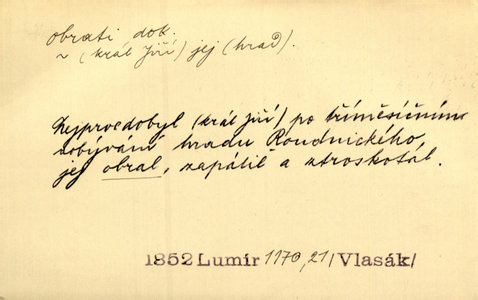 obrati dok.
~ (král Jiří) jej (hrad).
Nejprve dobyl (král Jiří) po tříměsíčním
dobývání hradu Roudnického,
jej obral, zapálil a ztroskotal.
1852 Lumír 1170,21 /Vlasák/